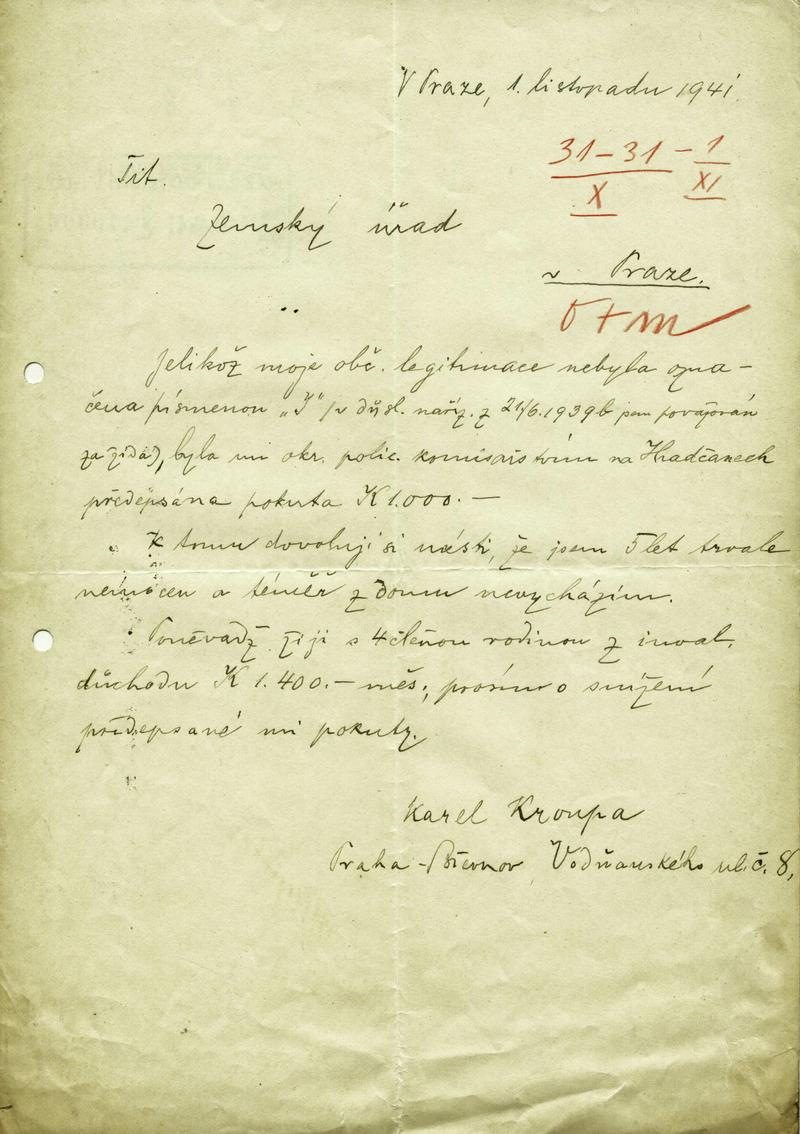 V Praze, 1. listopadu 1941
31 – 31 – 1
X XI
Tit.
Zemský úřad
v Praze.
Jelikož moje obč. legitimace nebyla ozna-
čena písmenou „J" (v důsl. naříz. z 21/6. 1939 jsem považován
za žida), byla mi okr. polic. komisařstvím na Hradčanech
předepsána pokuta K 1.000.—
K tomu dovoluji si uvésti, že jsem 5 let trvale
nemocen a téměř z domu nevycházím.
Poněvadž žiji s 4člennou rodinou z inval.
důchodu K 1.400.— měs., prosím o snížení
předepsané mi pokuty.
Karel Kroupa
Praha - Břevnov, Vodňanského ul. č. 8,